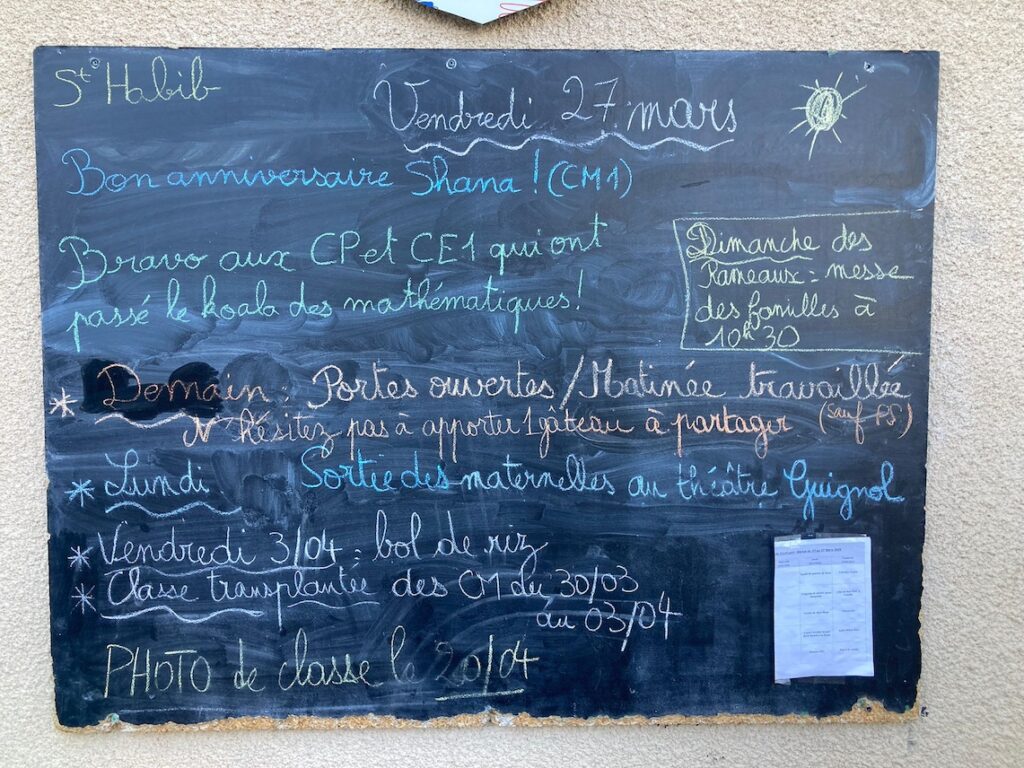 St Habib
Vendredi 27 mars
Bon anniversaire Shana ! (CM1)
Bravo aux CP et CE1 qui ont
passé le koala des mathématiques !
Dimanche des
Rameaux : messe
des familles à
10h30
* Demain : Portes ouvertes / Matinée travaillée
N'hésitez pas à apporter 1 gâteau à partager (sauf PS)
* Lundi Sortie des maternelles au théâtre Guignol
* Vendredi 3/04 : bol de riz
* Classe transplantée des CM du 30/03
au 03/04
PHOTO de classe le 20/04